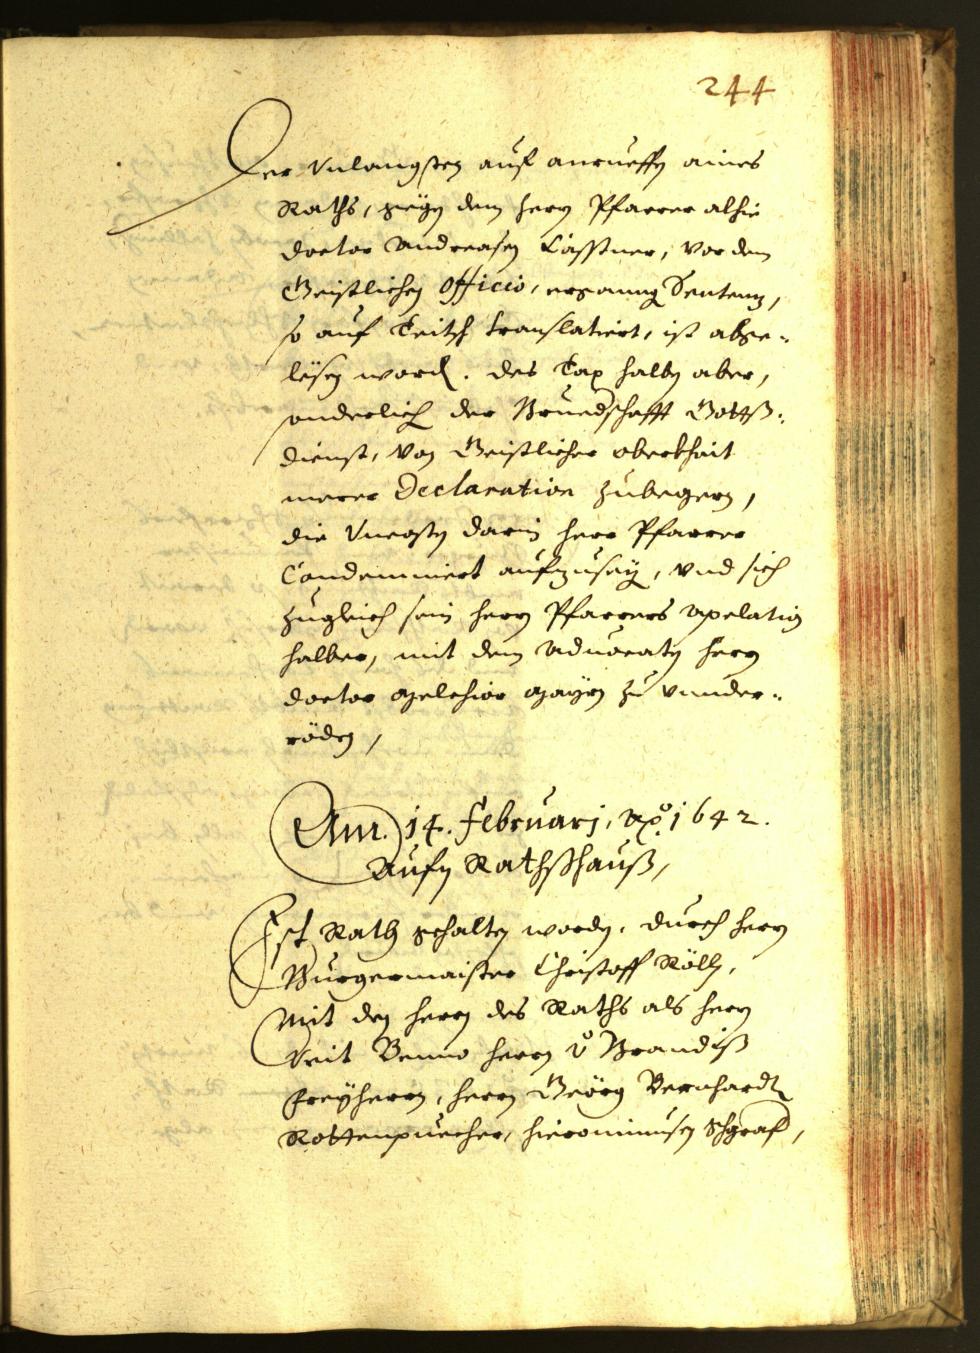 244
Der Vnlangsten auf anrueffen aines
Raths, gegen dem herrn Pfarrer alhie
doctor Andreasen Casstner, vor dem
Geistlichen Officio, ergangne Sentenz,
so auf Teitsch translatiert, ist abge-
lösen word. des Tax halben aber,
sonderlich der Bruedschafft Gottß-
dienst, von Geistlicher oberkhait
merer Declaration zubegern,
die Vncossten darin herr Pfarrer
Condemniert aufzu, vnd sich
zugleich sein herrn Pfarrers apelation
halber, mit dem aduocaten herrn
doctor Melchior Mayrn zu vnnder-
röden,
Am. 14. Februarj, Aō 1642.
Aufn Rathshauß,
Ist Rath gehalten worden, durch herrn
Burgermaister Christoff Röll,
Mit den herrn des Raths als herrn
Veit Benno herrn v Brandiß
Freyherrn, herrn Geörg Bernhardt
Rottenpuecher, Hieronimusen Schgraf,